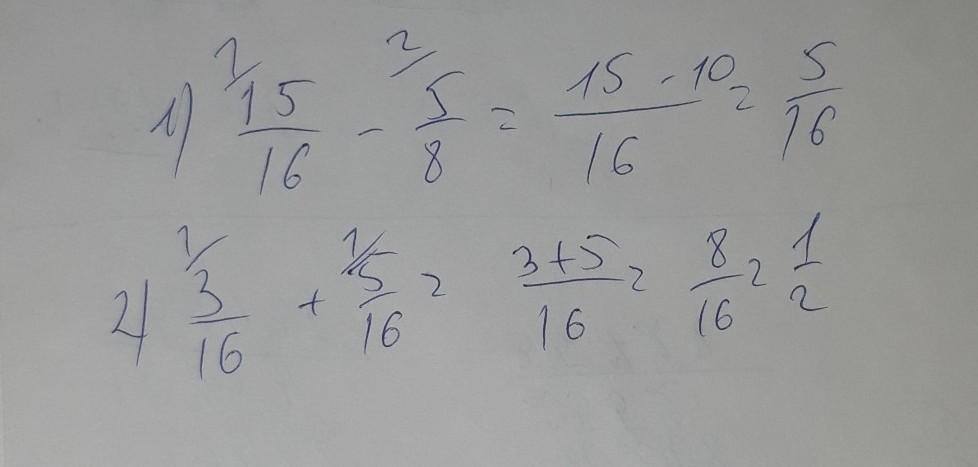 1) 1/ 15/16 - 2/ 5/8 = (15 - 10)/16 = 5/16
2) 1/ 3/16 + 1/ 5/16 = (3+5)/16 = 8/16 = 1/2